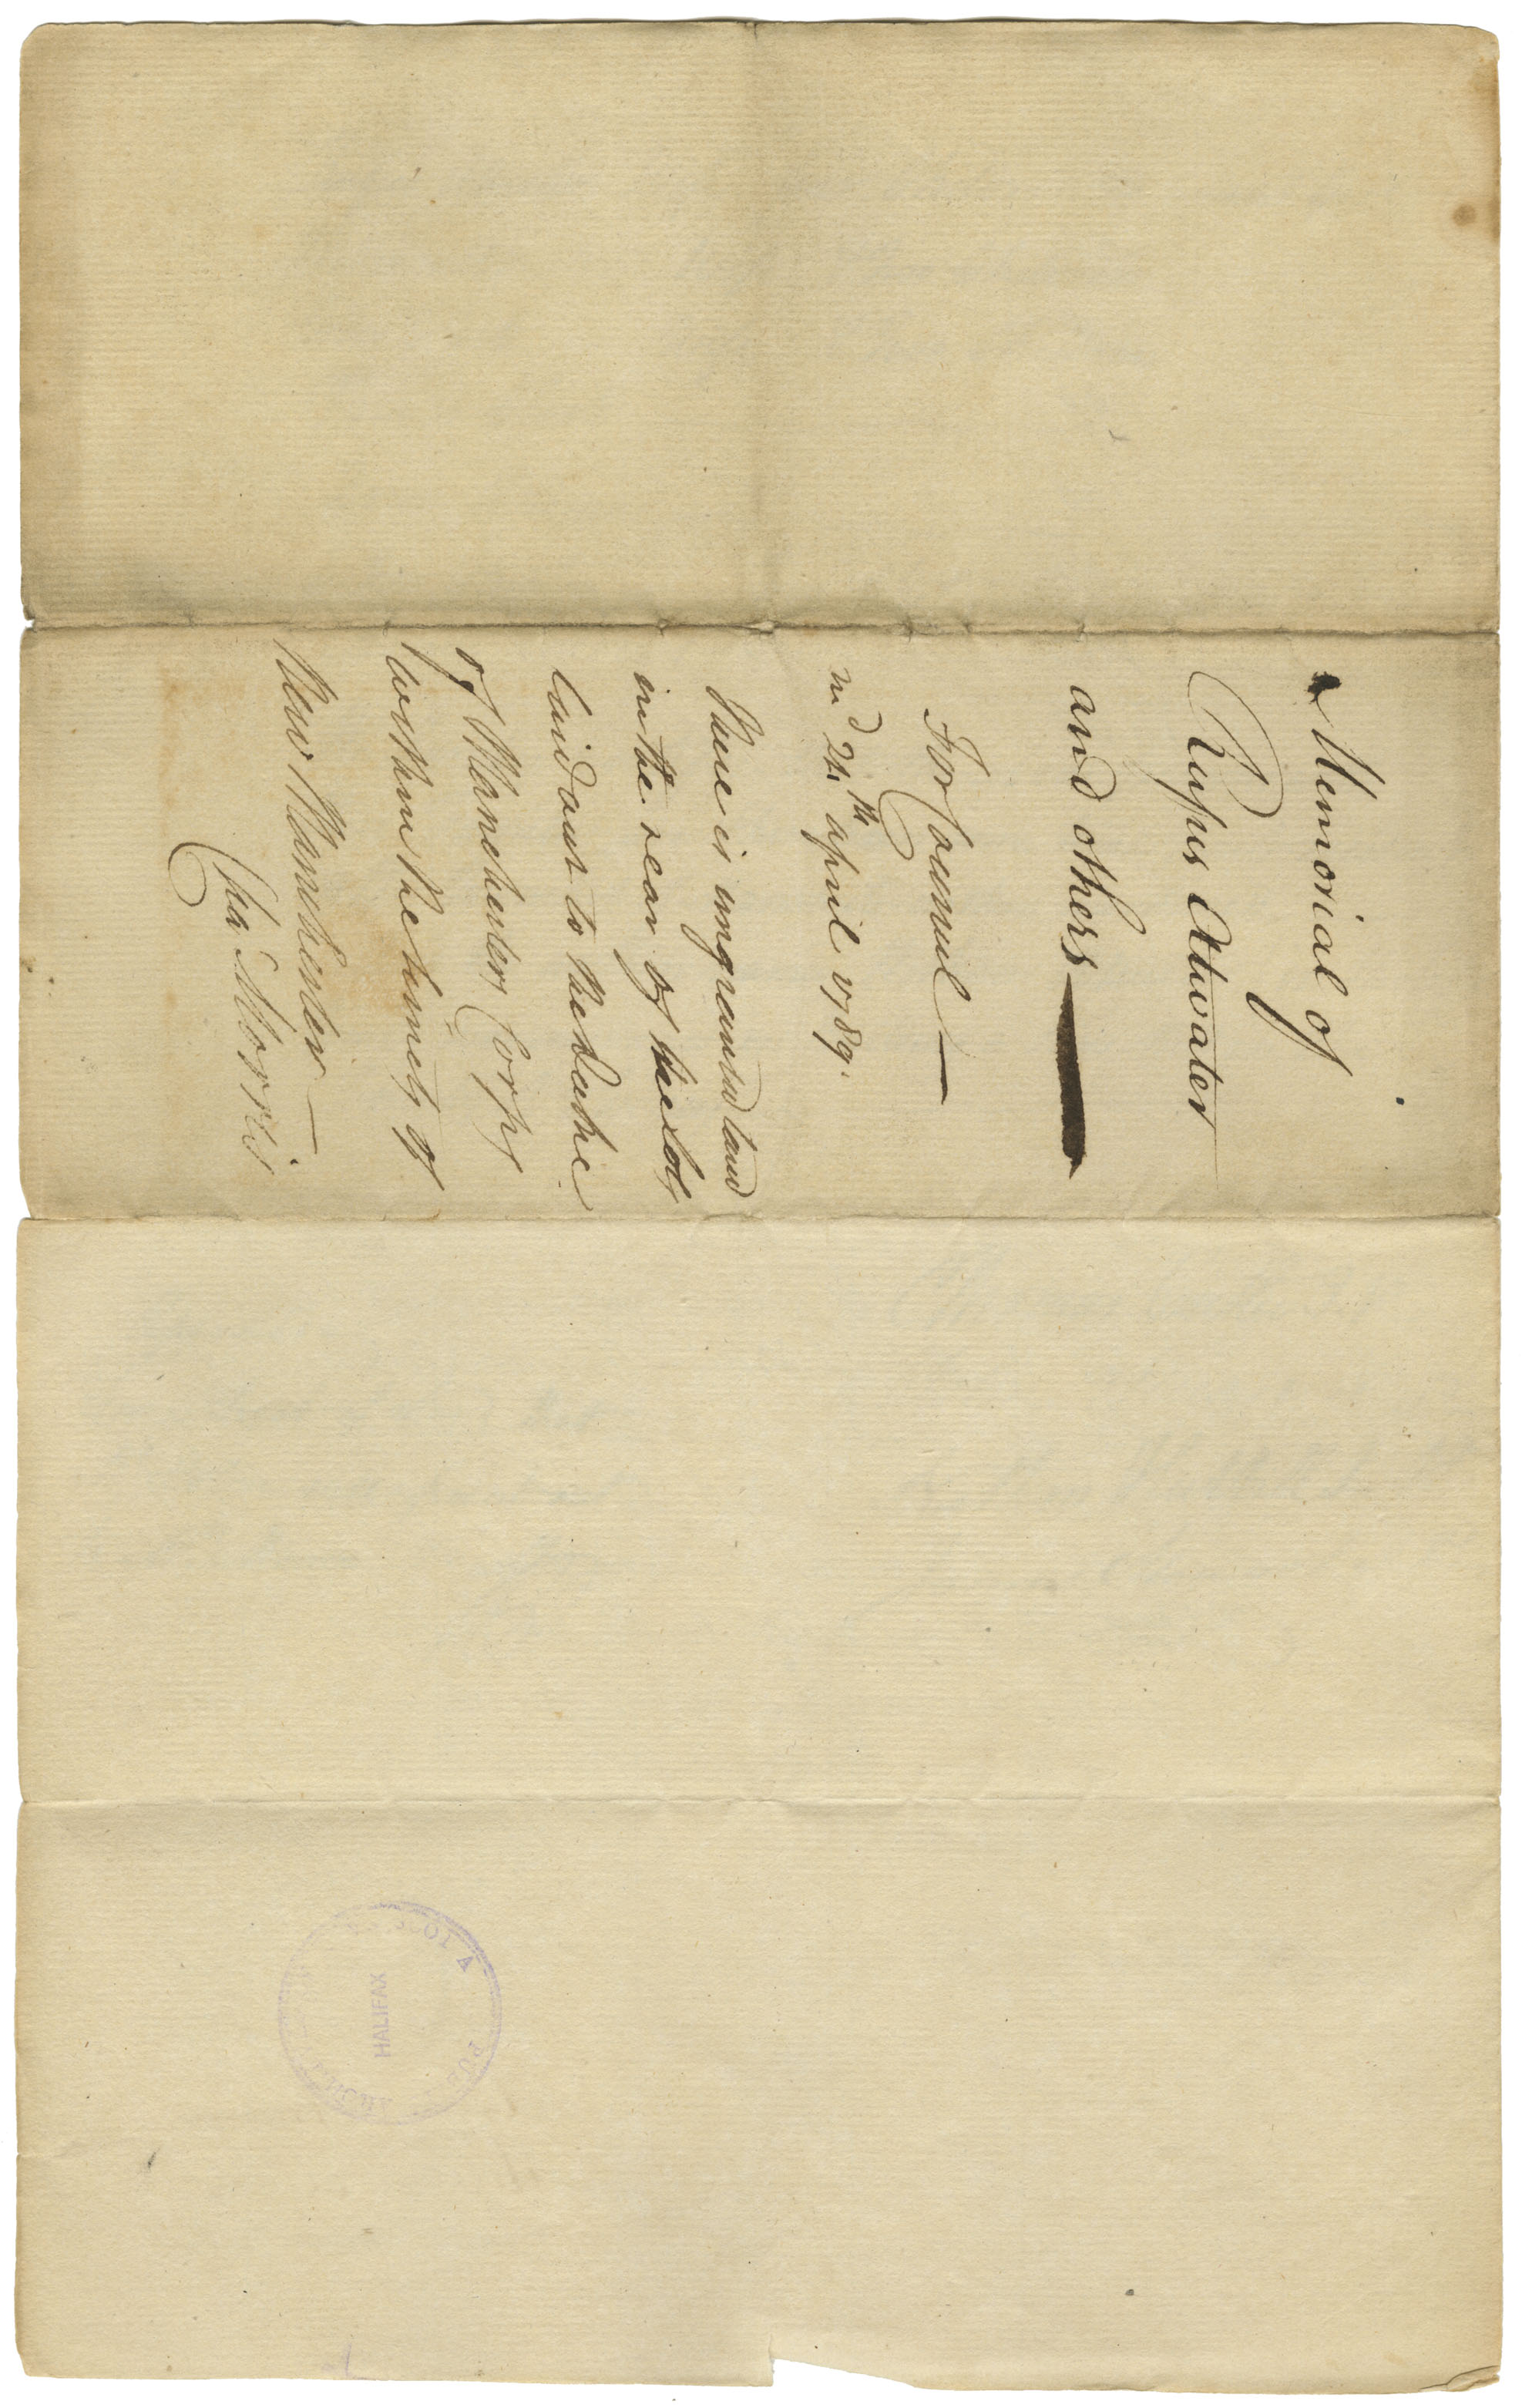 Memorial of
Rufus Atwater
and others
For Council
md 24th april 1789.
There is ungranted land
in the rear of the Lots
laid out to the
of Manchester, Corps
within the limets of
New Manchester
Cha Morris
HALIFAX